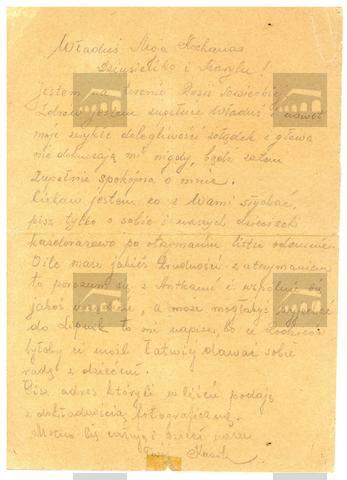 Właduś Moja Kochana
Dziusieńko i Marylu!
Jestem na terenie Rosji Sowieckiej
Zdrów jestem zupełnie Właduś nawet
moje zwykłe dolegliwości żołądek i głowa
nie dokuczają mi nigdy, bądź zatem
zupełnie spokojna o mnie.
Ciekaw jestem, co z Wami słychać,
pisz tylko o sobie i naszych dzieciach
każdorazowo po otrzymaniu listu odemnie.
O ile masz jakieś trudności z utrzymaniem
to porozum się z
jakoś, a może mogłabyś
do to mi napisz, bo w
byłoby ci może łatwiej dawać sobie
radę z dziećmi.
Pisz adres któryś w liście podaję
z dokładnością fotograficzną.
Mocno Cię całuję i dzieci nasze